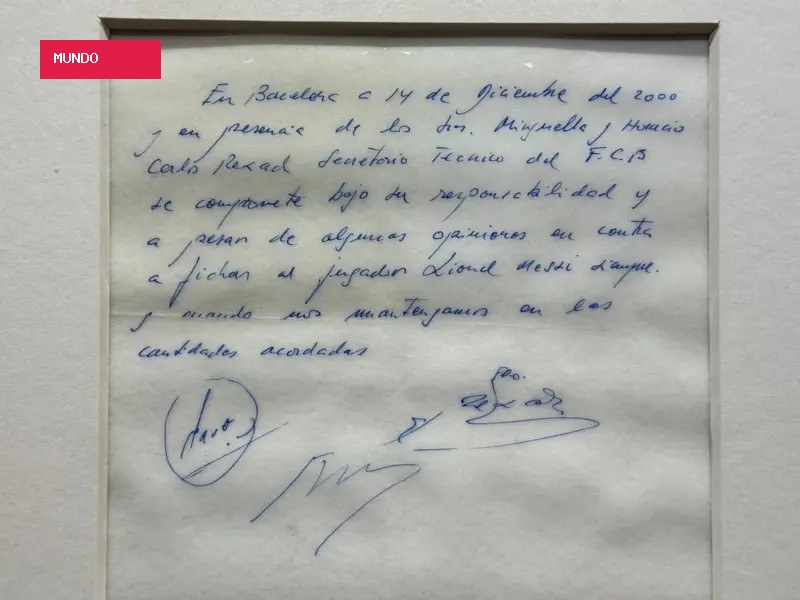 MUNDO
En Barcelona a 14 de Diciembre del 2000
y en presencia de los Srs. Minguella y Horacio
Carlos Rexach Secretario Tecnico del F.C.B
se compromete bajo su responsabilidad y
a pesar de algunas opiniones en contra
a fichar al jugador Lionel Messi siempre.
y cuando nos mantengamos en las
cantidades acordadas